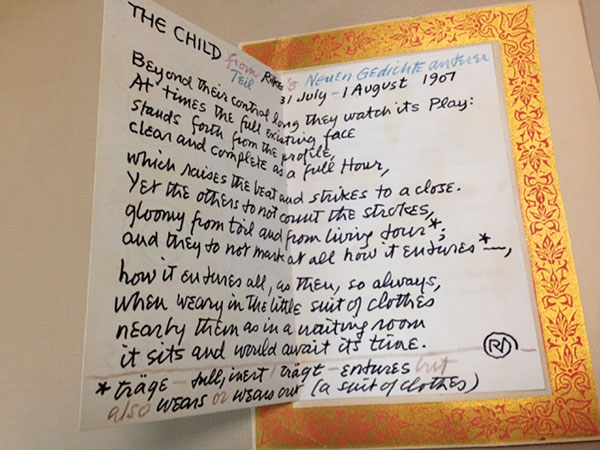 THE CHILD from Rilke's Neuen Gedichte anderer
Teil 31 July – 1 August 1907
Beyond their control long they watch its Play:
At times the full existing face
stands forth from the profile,
clear and complete as a full Hour,
which raises the beat and strikes to a close.
Yet the others to not count the strokes,
gloomy from toil and from living tour*;
and they to not mark at all how it entures*—,
how it entures all, as then, so always,
when weary in the little suit of clothes
nearby them as in a waiting room
it sits and would await its time.
RA
* träge – tull, inert / trägt – entures but
also wears or wears out (a suit of clothes)